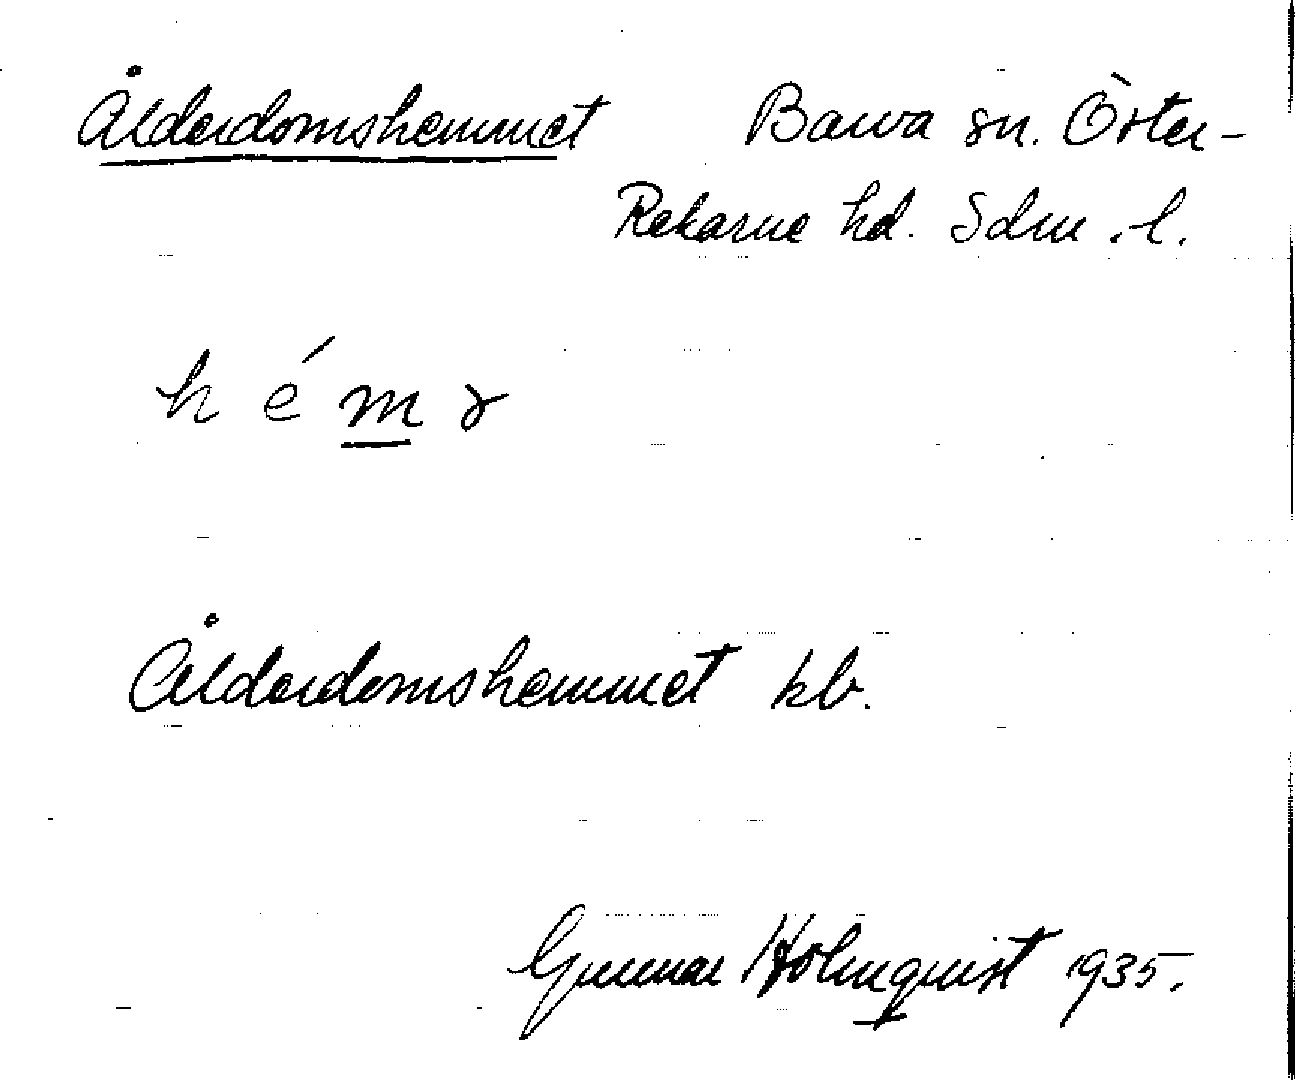 Ålderdomshemmet Barva sn. Öster-
Rekarne hd. Sdm. l.
hém
Ålderdomshemmet kb.
Gunnar Holmquist 1935.